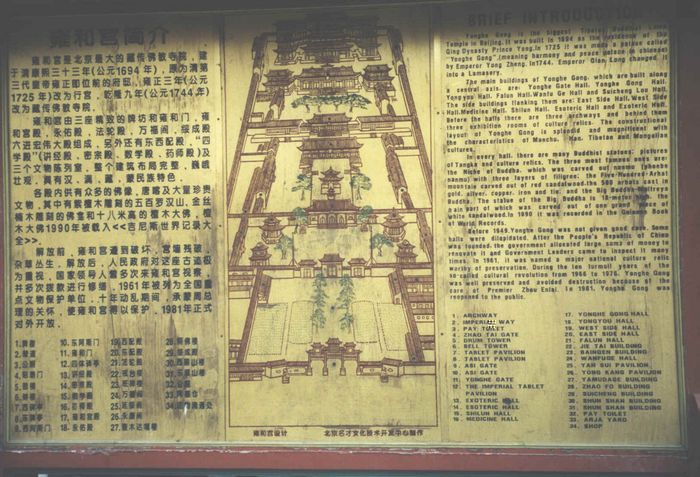 雍和宫简介
雍和宫是北京最大的藏传佛教寺院，建
于清康熙三十三年(公元1694年)，原为清第
三代皇帝雍正即位前的府邸，雍正三年(公元
1725年)改为行宫，乾隆九年(公元1744年)
改为藏传佛教寺院。
雍和宫由三座精致的牌坊和雍和门，雍
和宫殿，永佑殿，法轮殿，万福阁，绥成殿
六进宏伟大殿组成，另外还有东西配殿，"四
学殿"(讲经殿、密宗殿、数学殿、药师殿)及
三个文物陈列室，整个建筑布局完整，巍峨
壮观，具有汉，满，蒙，藏民族特色。
各殿内供有众多的佛像，唐喀及大量珍贵
文物，其中有紫檀木雕刻的五百罗汉山，金丝
楠木雕刻的佛龛和十八米高的檀木大佛，檀
木大佛1990年被载入<<吉尼斯世界记录大
全>>。
解放前，雍和宫遭到破坏，宫墙残破，
杂草丛生，解放后，人民政府对这座古迹极
为重视，国家领导人曾多次来雍和宫视察，
并多次拨款进行修道，1961年被列为全国重
点文物保护单位，十年动乱期间，承蒙周总
理的关怀，使雍和宫得以保护，1981年正式
对外开放。
雍和宫设计 北京名才文化技术开发中心制作
BRIEF INTRODUCTION
Yonghe Gong is the Biggest Tibetan Buddhist Lama
Temple in Beijing. It was built in 1694 as the residence of the
Qing Dynasty Prince Yong. In 1725 it was made a palace called
"Yonghe Gong" (meaning harmony and peace palace in chinese)
by Emperor Yong Zheng. In 1744, Emperor Qian Long changed it
into a Lamasery.
The main buildings of Yonghe Gong, which are built along
a central axis, are: Yonghe Gate Hall, Yonghe Gong Hall,
Yongyou Hall, Falun Hall, Wanfu Ge Hall and Suicheng Lou Hall.
The side buildings flanking them are: East Side Hall, West Side
Hall, Medicine Hall, Shilun Hall, Esoteric Hall and Exoteric Hall.
Before the halls there are three archways and behind them
three exhibition rooms of culture relics. The constructional
layout of Yonghe Gong is splendid and magnificent with
the characteristics of Manchu, Han, Tibetan and Mongolian
cultures.
In every hall, there are many Buddhist statues, pictures
of Tangka and culture relics. The three most famous ones are:
the Niche of Buddha, which was carved out of nanmu (phoebe
nanmu) with three layers of filigree; the Five-Hundred-Arhat
mountain carved out of red sandalwood, the 500 arhats cast in
gold, silver, copper, iron and tin; and the Big Buddha, Maitreya
Buddha. The statue of the Big Buddha is 18-metre-high, the
main part of which was carved out of one grand piece of
white sandalwood. In 1990 it was recorded in the Guinness Book
of World Records.
Before 1949, Yonghe Gong was not given good care. Some
halls were dilapidated. After the People's Republic of China
was founded, the government allocated large sums of money to
renovate it and Government Leaders came to inspect it many
times. In 1961, it was named a major national culture relic
worthy of preservation. During the ten turmoil years of the
so-called cultural revolution from 1966 to 1976, Yonghe Gong
was well preserved and avoided destruction because of the
care of Premier Zhou Enlai. In 1981, Yonghe Gong was
reopened to the public.
1: ARCHWAY
2: IMPERIAL WAY
3: PAY TOILET
4: ZHAO TAI GATE
5: DRUM TOWER
6: BELL TOWER
7: TABLET PAVILION
8: TABLET PAVILION
9: ASI GATE
10: ASI GATE
11: YONGHE GATE
12: THE IMPERIAL TABLET
PAVILION
13: EXOTERIC HALL
14: ESOTERIC HALL
15: SHILUN HALL
16: MEDICINE HALL
17: YONGHE GONG HALL
18: YONGYOU HALL
19: WEST SIDE HALL
20: EAST SIDE HALL
21: FALUN HALL
22: JIE TAI BUILDING
23: BANGEEN BUILDING
24: WANFUGE HALL
25: YAN SUI PAVILION
26: YONG KANG PAVILION
27: YAMUDAGE BUILDING
28: ZHAO FO BUILDING
29: SUICHENG BUILDING
30: SHUN SHAN BUILDING
31: SHUN SHAN BUILDING
32: PAY TOILET
33: ARJA YARD
34: SHOP